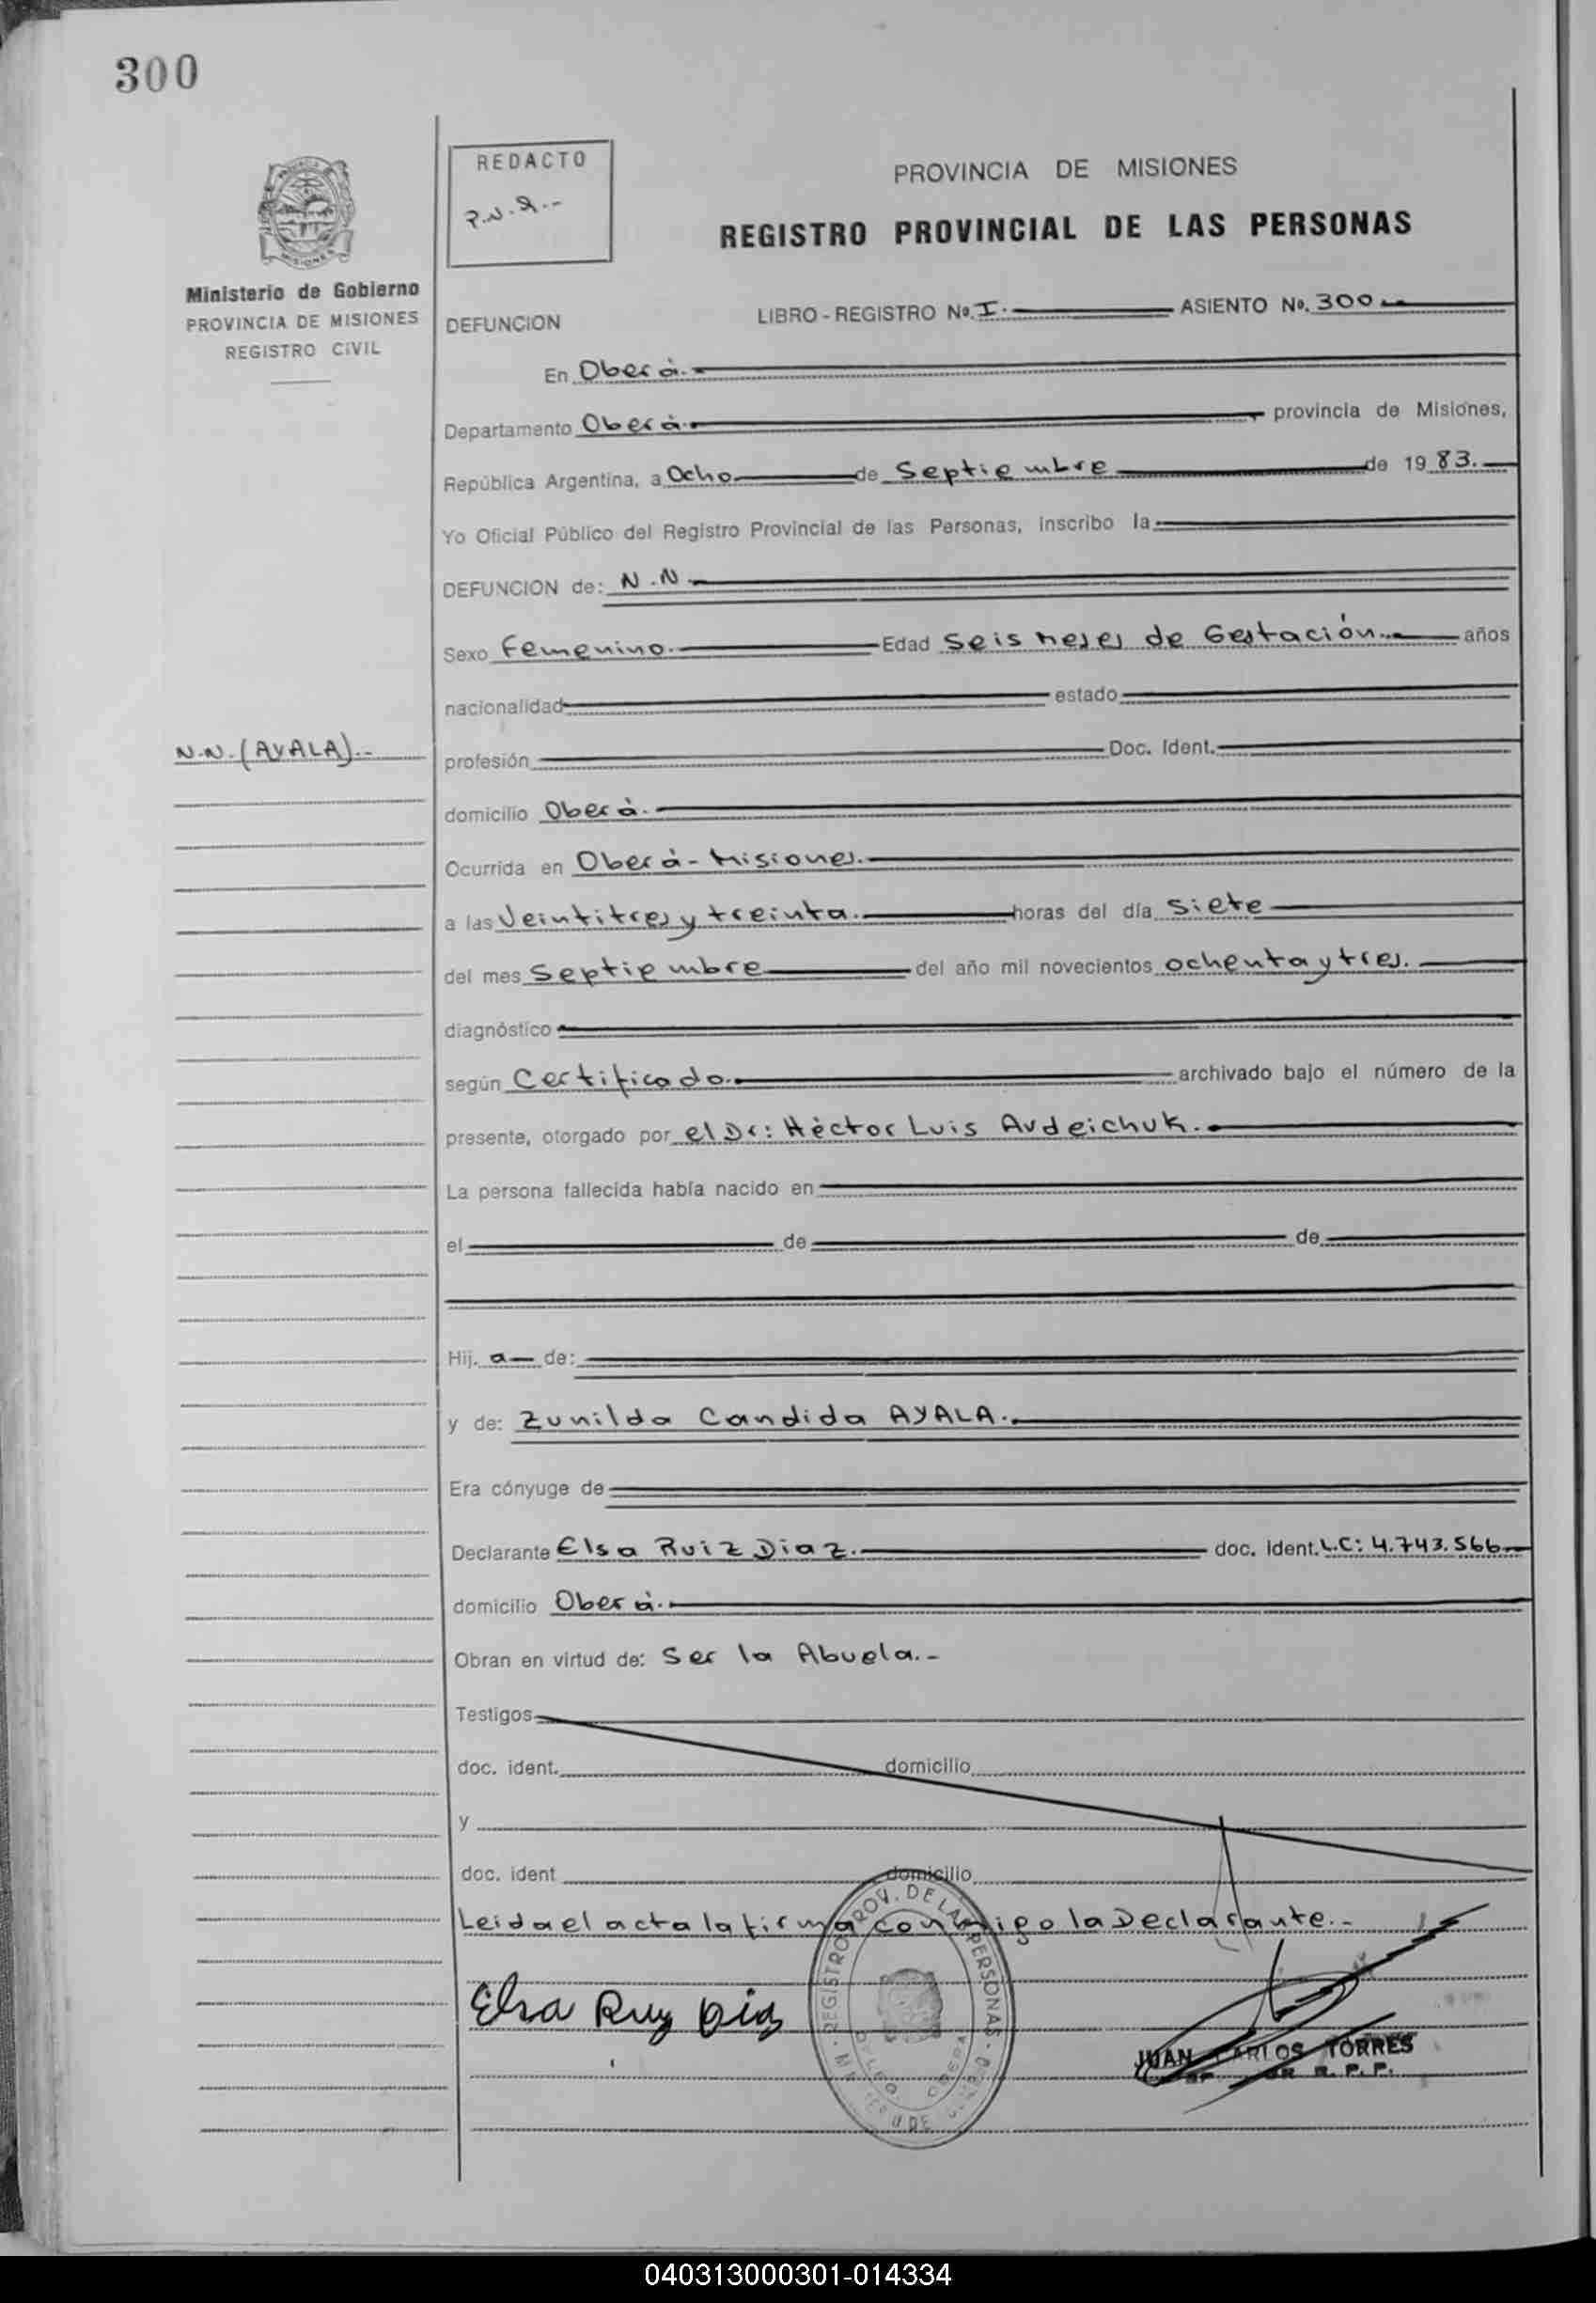 300
REDACTO
MISIONES
Ministerio de Gobierno
PROVINCIA DE MISIONES
REGISTRO CIVIL
PROVINCIA DE MISIONES
REGISTRO PROVINCIAL DE LAS PERSONAS
DEFUNCION LIBRO - REGISTRO No. I. ASIENTO No. 300
En Oberà.
Departamento Oberà. provincia de Misiones,
República Argentina, a Ocho de Septiembre de 19 83.
Yo Oficial Público del Registro Provincial de las Personas, inscribo la
DEFUNCION de: N.N.
Sexo Femenino. Edad Seis Meses de Gestación. años
nacionalidad estado
N.N. (AYALA).-
profesión Doc. Ident.
domicilio Oberà.
Ocurrida en Oberà - Misiones.
a las Veintitres y treinta. horas del día siete
del mes Septiembre del año mil novecientos ochenta y tres.
diagnóstico
según Certificado. archivado bajo el número de la
presente, otorgado por el Dr: Hèctor Luis Avdeichuk.
La persona fallecida había nacido en
el de de
Hij. a de:
y de: Zunilda Candida AYALA.
Era cónyuge de
Declarante Elsa Ruiz Diaz. doc. ident. L.C: 4.743.566
domicilio Oberà.
Obran en virtud de: Ser la Abuela.-
Testigos
doc. ident. domicilio
y
doc. ident domicilio
Leida el acta la firma conmigo la Declarante.-
REGISTRO PROV. DE LAS PERSONAS
Elsa Ruiz Diaz
JUAN CARLOS TORRES
R. P. P.
040313000301-014334